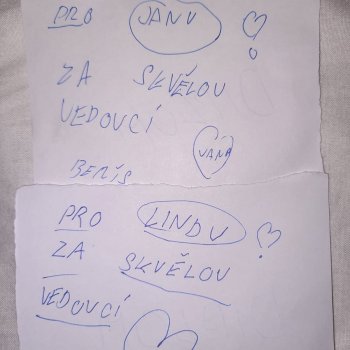 PRO JANU
ZA SKVĚLOU
VEDOUCÍ
JÁNA
BERÍŠ
PRO LINDU
ZA SKVĚLOU
VEDOUCÍ